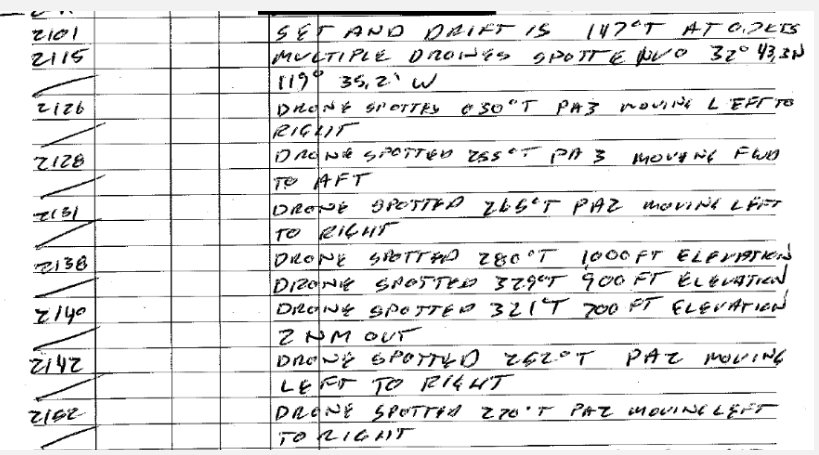 2101 SET AND DRIFT IS 147°T AT 0.2KTS
2115 MULTIPLE DRONES SPOTTE 32° 43.3N
119° 35.2' W
2126 DRONE SPOTTED 030°T PA3 MOVING LEFT TO
RIGHT
2128 DRONE SPOTTED 255°T PA 3 MOVING FWD
TO AFT
2131 DRONE SPOTTED 265°T PA2 MOVING LEFT
TO RIGHT
2138 DRONE SPOTTED 280°T 1000FT ELEVATION
DRONE SPOTTED 329°T 900 FT ELEVATION
2140 DRONE SPOTTED 321°T 700 FT ELEVATION
2 NM OUT
2142 DRONE SPOTTED 262°T PA2 MOVING
LEFT TO RIGHT
2152 DRONE SPOTTED 270°T PA2 MOVING LEFT
TO RIGHT